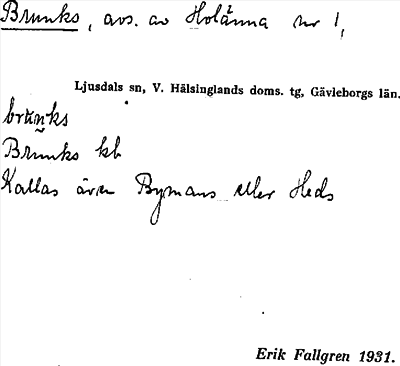 Brunks, avs. av Holänna nr 1,
Ljusdals sn, V. Hälsinglands doms. tg, Gävleborgs län.
bruŋ̫ks
Brunks kb
Kallas även Bymans eller Heds
Erik Fallgren 1931.